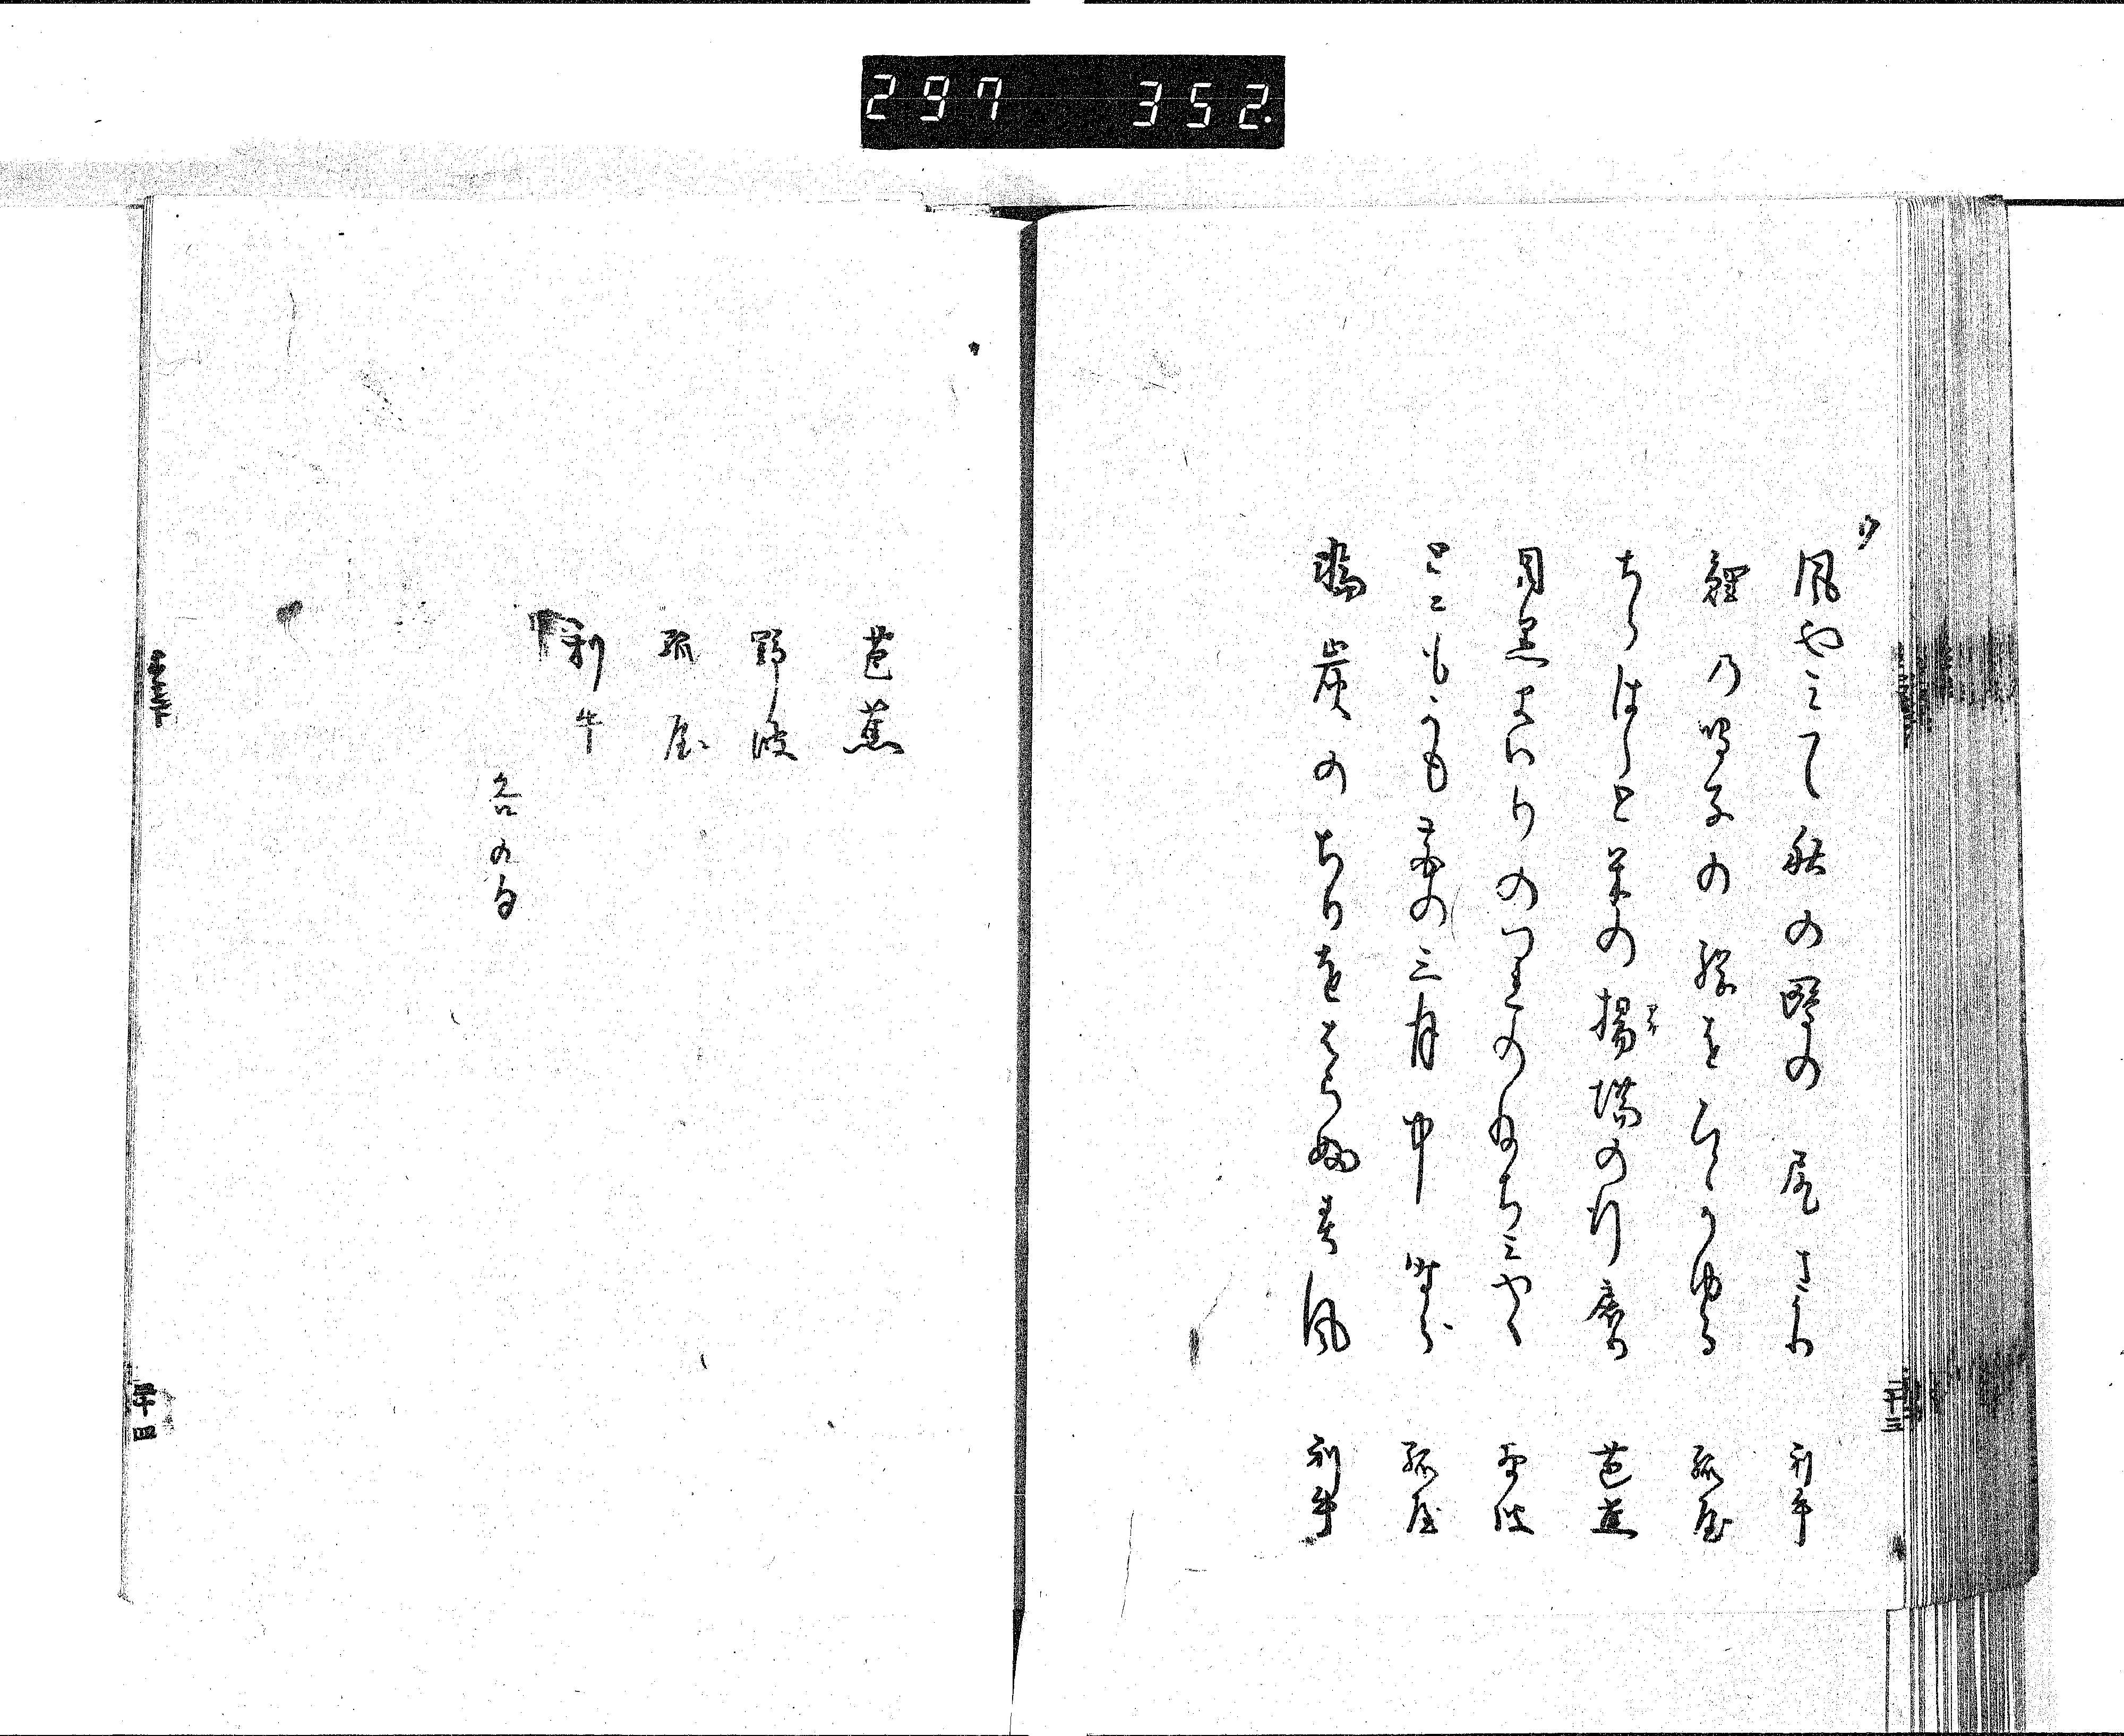 297 352.
ウ
風やミて秋の鴎の尻さかり 利牛
鯉の鳴子の綱をひかゆる 孤屋
ちらはらと米の揚場の行戻り 芭蕉
アゲ
目黒まいりのつれのねちミやく 野坡
とこもかも花の三月中時分 孤屋
輪炭のちりをはらふ春風 利牛
二十三
芭蕉
野坡
孤屋
利牛
各九句
二十四